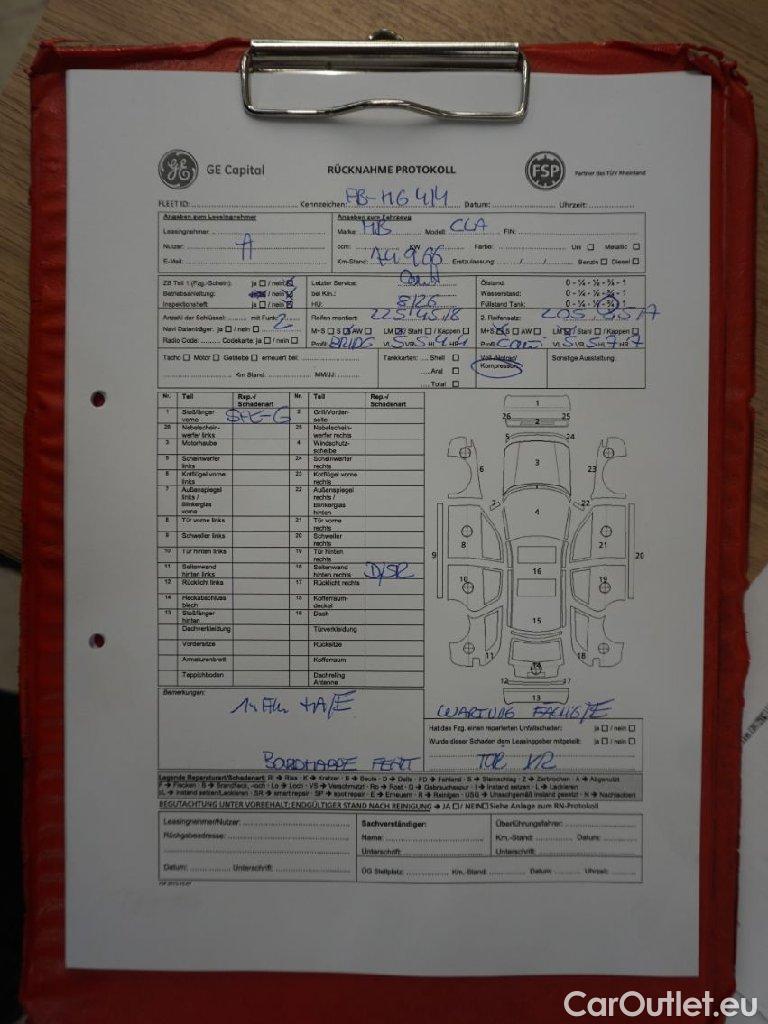 GE Capital RÜCKNAHME PROTOKOLL FSP Partner des TÜV Rheinland
FLEET ID: Kennzeichen: Datum: Uhrzeit:
Angaben zum Leasingnehmer Angaben zum Fahrzeug
Leasingnehmer: Marke MB Modell: CLA FIN:
Nutzer: A ccm: KW Farbe: Uni Metallic
E-Mail: Km-Stand: 74966 Erstzulassung: / / Benzin Diesel
ZB Teil 1 (Fzg.-Schein): ja / nein Letzter Service: Ölstand:
Betriebsanleitung: / nein bei Km.: Wasserstand: 0 - ¼ - ½ - ¾ - 1
Inspektionsheft: ja / nein HU: 8/26 Füllstand Tank: 0 - ¼ - ½ - ¾ - 1
Anzahl der Schlüssel: mit Funk: 2 Reifen montiert: 225/45/18 2. Reifensatz:
Navi Datenträger: ja / nein M+S S AW LM / Stahl / Kappen M+S S AW LM / Stahl / Kappen
Radio Code: Codekarte: ja / nein Profil
Tacho Motor Getriebe erneuert bei: Tankkarten: Shell Sonstige Ausstattung:
Km Stand: MM/JJ: Aral Kompressor
Total
Nr. Teil Rep.-/ Schadenart Nr. Teil Rep.-/ Schadenart
1 Stoßfänger vorne 2 Grill/Vorderseite
26 Nebelscheinwerfer links 25 Nebelscheinwerfer rechts
3 Motorhaube 4 Windschutzscheibe
5 Scheinwerfer links 24 Scheinwerfer rechts
6 Kotflügel vorne links 23 Kotflügel vorne rechts
7 Außenspiegel links / Blinkerglas vorne 22 Außenspiegel rechts / Blinkerglas hinten
8 Tür vorne links 21 Tür vorne rechts
9 Schweller links 20 Schweller rechts
10 Tür hinten links 19 Tür hinten rechts
11 Seitenwand hinten links 18 Seitenwand hinten rechts D/SR
12 Rücklicht links 17 Rücklicht rechts
14 Heckabschlussblech 15 Kofferraumdeckel
13 Stoßfänger hinten 16 Dach
Dachverkleidung Türverkleidung
Vordersitze Rücksitze
Armaturenbrett Kofferraum
Teppichboden Dachreling Antenne
1
26 25
2
5 24
6 3 23
7 22
4
9 8 21 20
16
10 19
15
11 18
14
12 17
13
Bemerkungen:
WARTUNG
BORDMAPPE FEHLT
Hat das Fzg. einen reparierten Unfallschaden: ja / nein
Wurde dieser Schaden dem Leasinggeber mitgeteilt: ja / nein
Legende Reparaturart/Schadenart: RI → Riss · K → Kratzer · B → Beule · D → Delle · FD → Fehlend · S → Steinschlag · Z → Zerbrochen · A → Abgenutzt
F → Flecken · B → Brandfleck, -loch · Lo → Loch · VS → Verschmutzt · Ro → Rost · G → Gebrauchsspur · I → Instand setzen · L → Lackieren
IL → instand setzen/Lackieren · SR → smart repair · SP → spot repair · E → Erneuern · R → Reinigen · USG → Unsachgemäß instand gesetzt · N → Nachlacken
BEGUTACHTUNG UNTER VORBEHALT: ENDGÜLTIGER STAND NACH REINIGUNG → JA / NEIN Siehe Anlage zum RN-Protokoll
Leasingnehmer/Nutzer: Sachverständiger: Überführungsfahrer:
Rückgabeadresse: Name: Km.-Stand: Datum:
Unterschrift: Unterschrift:
Datum: Unterschrift: ÜG Stellplatz: Km.-Stand: Datum: Uhrzeit:
CarOutlet.eu